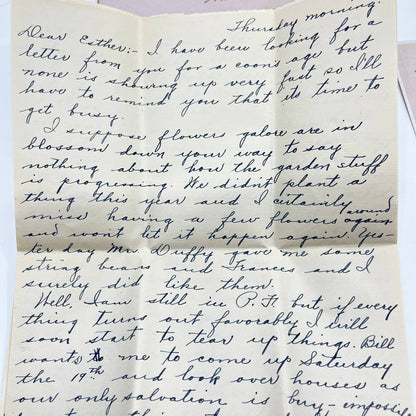 Thursday morning.
Dear Esther:- I have been looking for a
letter from you for a coons age but
none is showing up very fast so I'll
have to remind you that its time to
get busy.
I suppose flowers galore are in
blossom down your way to say
nothing about how the garden stuff
is progressing. We didn't plant a
thing this year and I certainly
miss having a few flowers around
and wont let it happen again. Yes-
ter day Mrs. Duffy gave me some
string beans and Frances and I
surely did like them.
Well, I am still in P. F. but if every
thing turns out favorably I will
soon start to tear up things. Bill
wants me to come up Saturday
the 19th and look over houses as
our only salvation is buy - impossi